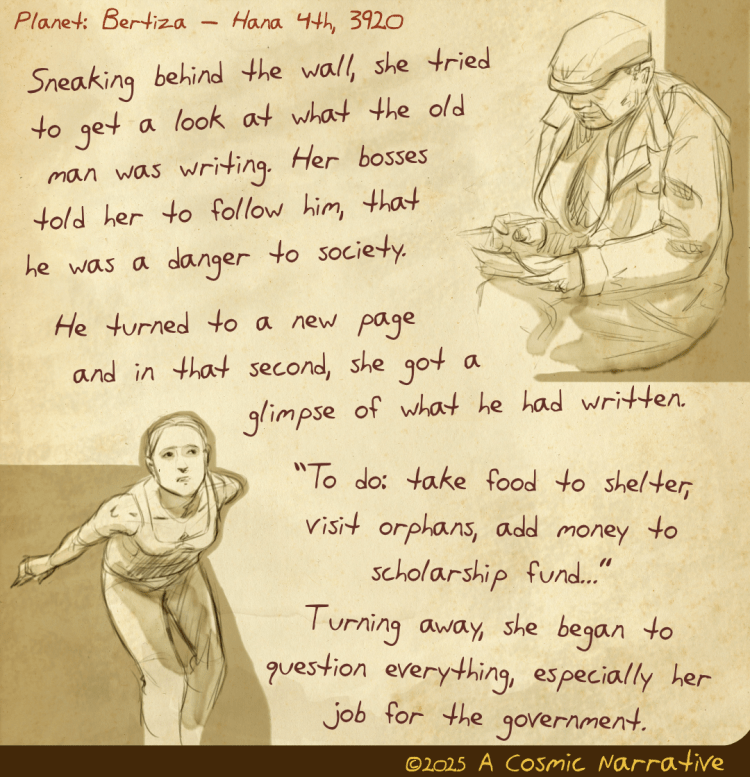 Planet: Bertiza – Hana 4th, 3920
Sneaking behind the wall, she tried
to get a look at what the old
man was writing. Her bosses
told her to follow him, that
he was a danger to society.
He turned to a new page
and in that second, she got a
glimpse of what he had written.
"To do: take food to shelter,
visit orphans, add money to
scholarship fund..."
Turning away, she began to
question everything, especially her
job for the government.
©2025 A Cosmic Narrative